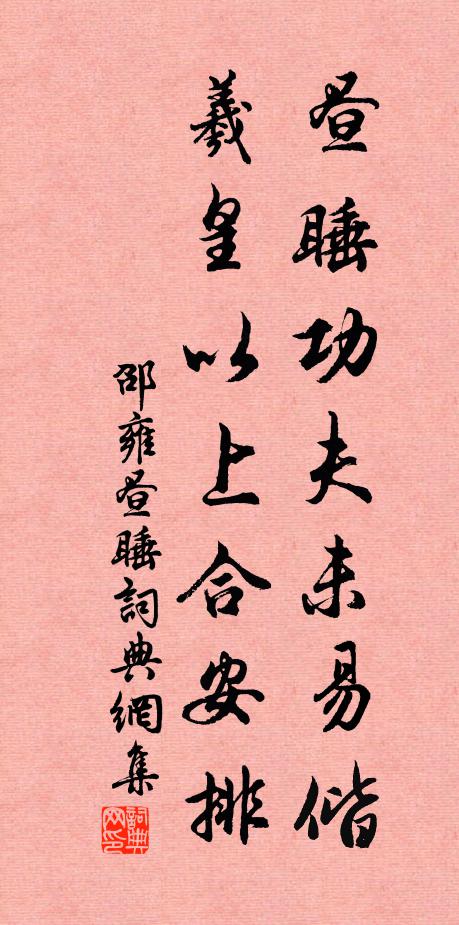 昼睡功夫未易偕
羲皇以上合安排
邵雍昼睡詞典網集
詞典
网印